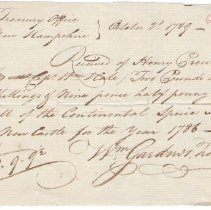 Treasury Office
New Hampshire } October 2d 1789 -
Received of Henry
Capt Wm Two Pounds
Shillings & Nine pence half penny
of the Continental Specie
New Castle for the Year 1786 -
9.9½ Wm Gardner